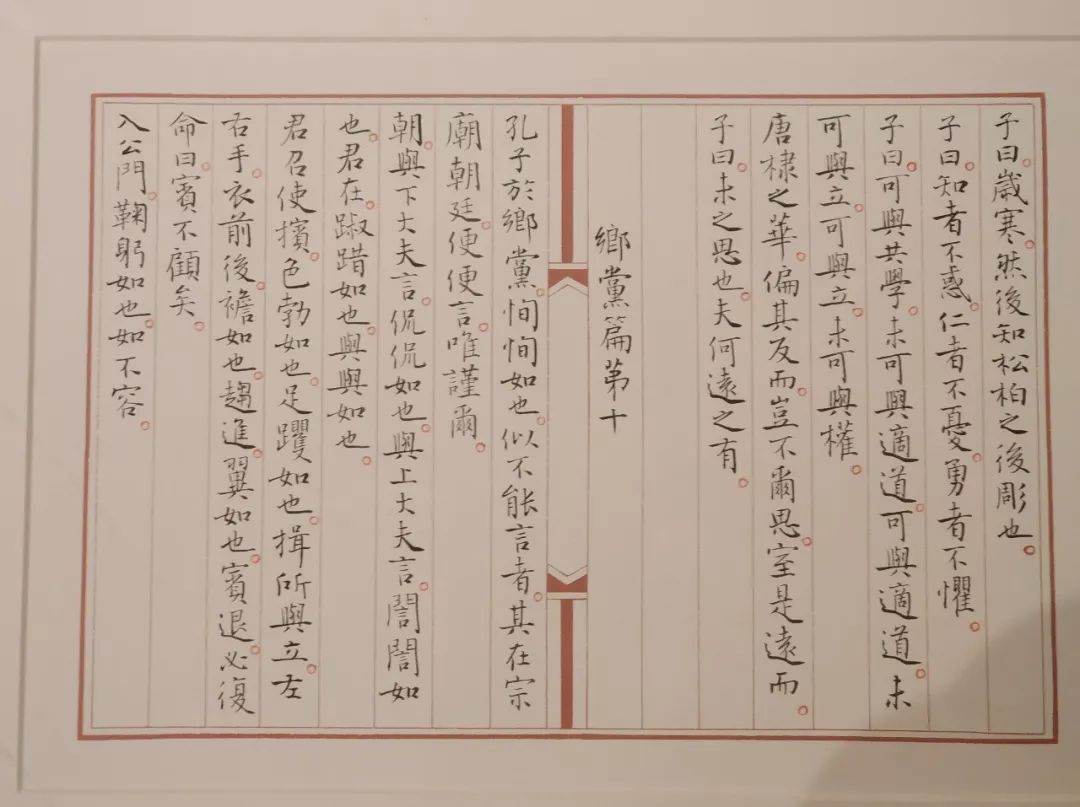 子曰。歲寒。然後知松柏之後彫也。
子曰。知者不惑。仁者不憂。勇者不懼。
子曰。可與共學。未可與適道。可與適道。未
可與立。可與立。未可與權。
唐棣之華。偏其反而。豈不爾思。室是遠而。
子曰。未之思也。夫何遠之有。
鄉黨篇第十
孔子於鄉黨。恂恂如也。似不能言者。其在宗
廟朝廷。便便言。唯謹爾。
朝。與下大夫言。侃侃如也。與上大夫言。誾誾如
也。君在。踧踖如也。與與如也。
君召使擯。色勃如也。足躩如也。揖所與立。左
右手。衣前後。襜如也。趨進。翼如也。賓退。必復
命曰。賓不顧矣。
入公門。鞠躬如也。如不容。